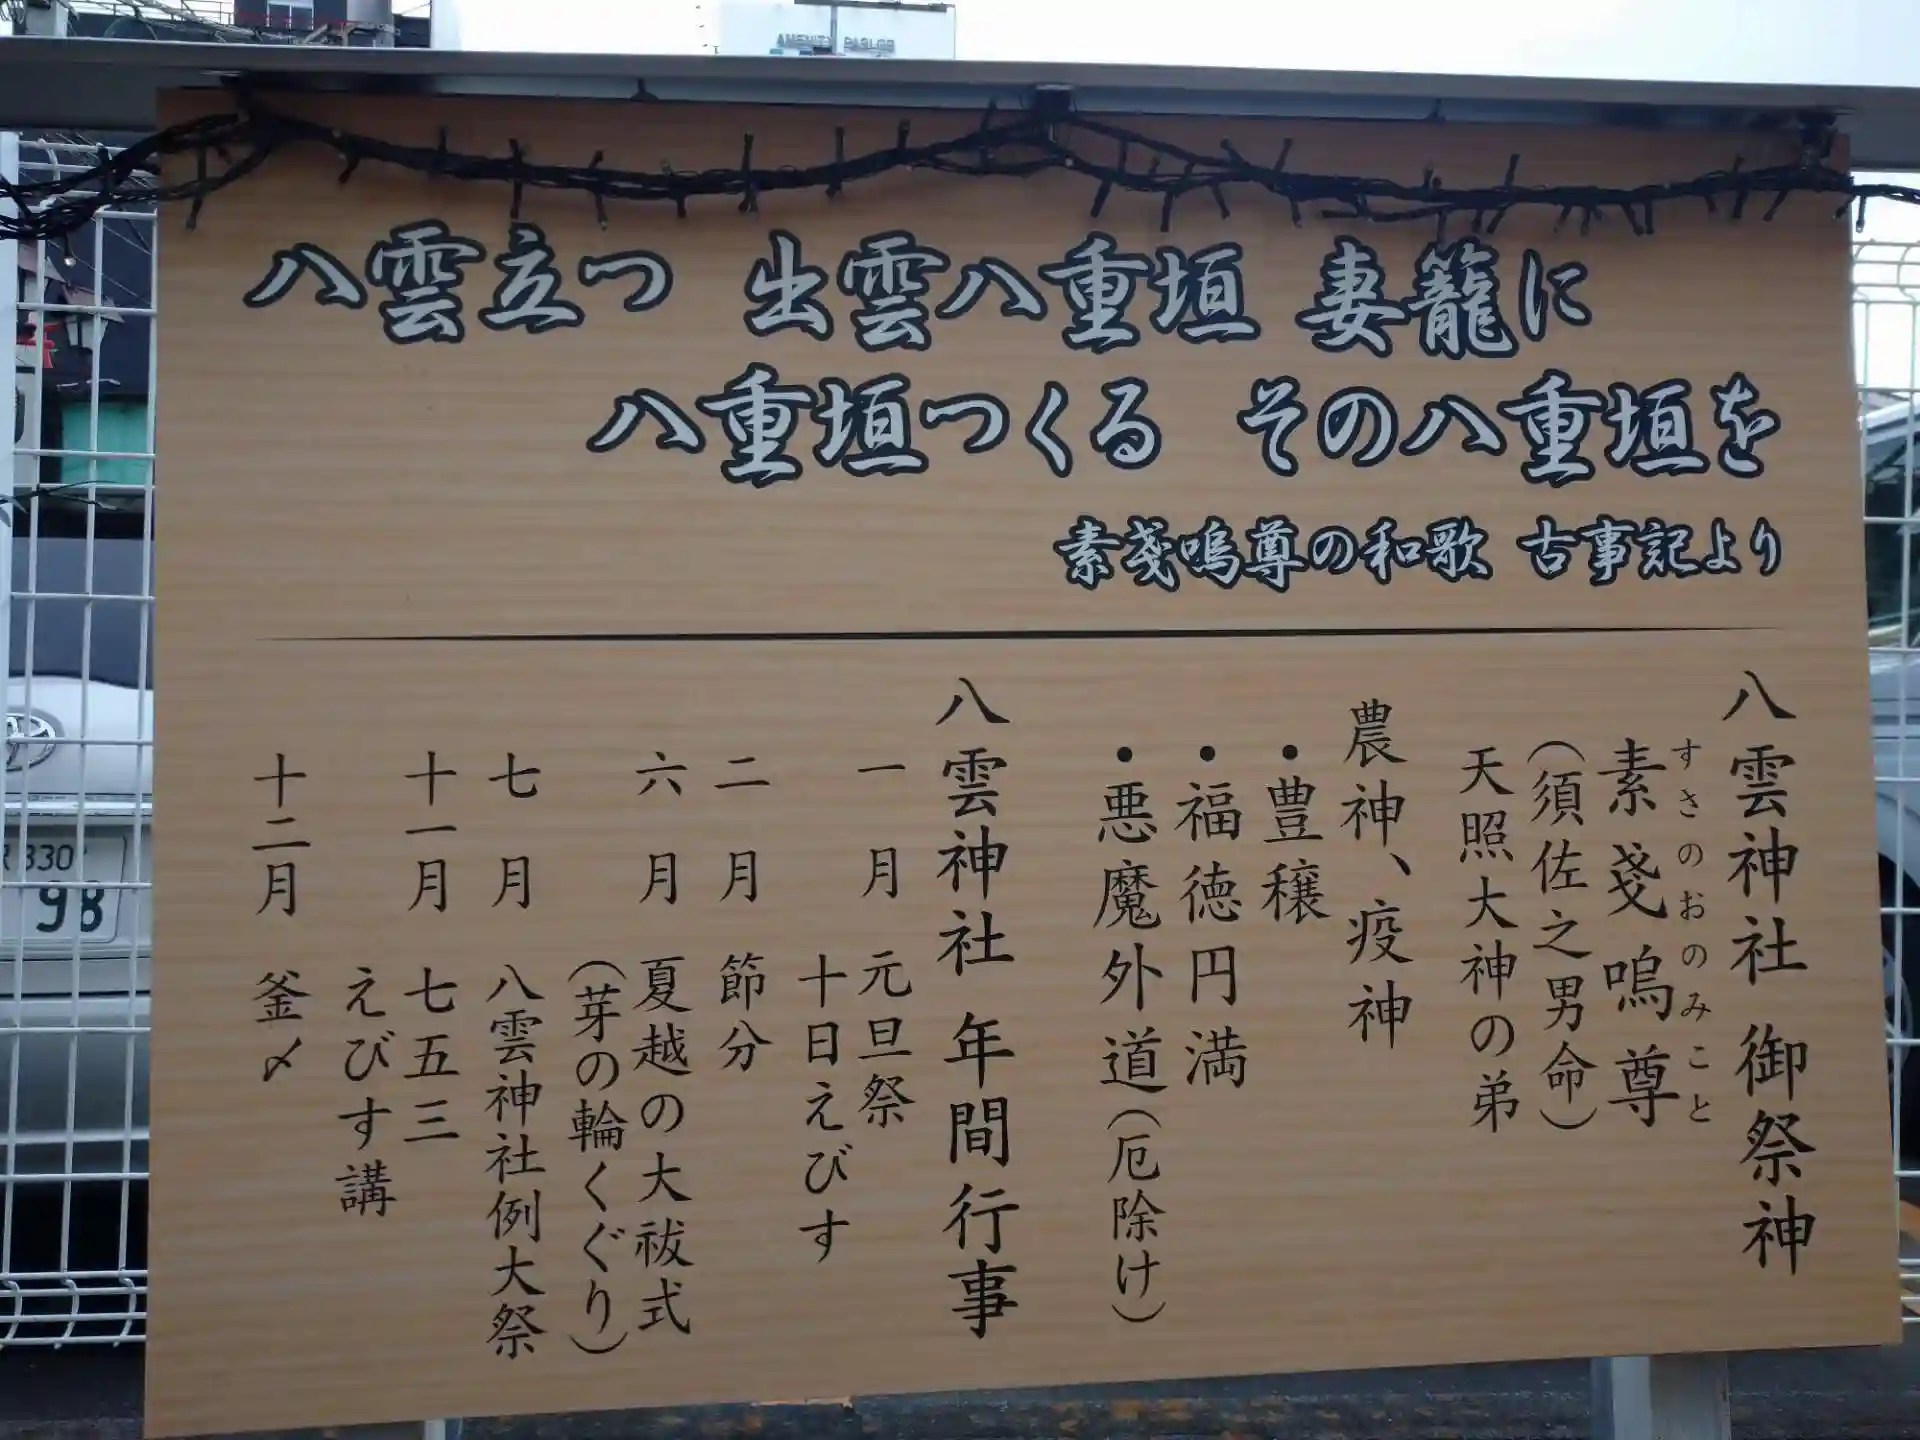 AMENITY PARLOR
八雲立つ 出雲八重垣 妻籠に
八重垣つくる その八重垣を
素戔嗚尊の和歌 古事記より
八雲神社 御祭神
すさのおのみこと
素戔嗚尊
（須佐之男命）
天照大神の弟
農神、疫神
・豊穣
・福徳円満
・悪魔外道（厄除け）
八雲神社 年間行事
一月 元旦祭
十日えびす
二月 節分
六月 夏越の大祓式
（芽の輪くぐり）
七月 八雲神社例大祭
十一月 七五三
えびす講
十二月 釜〆
330
98